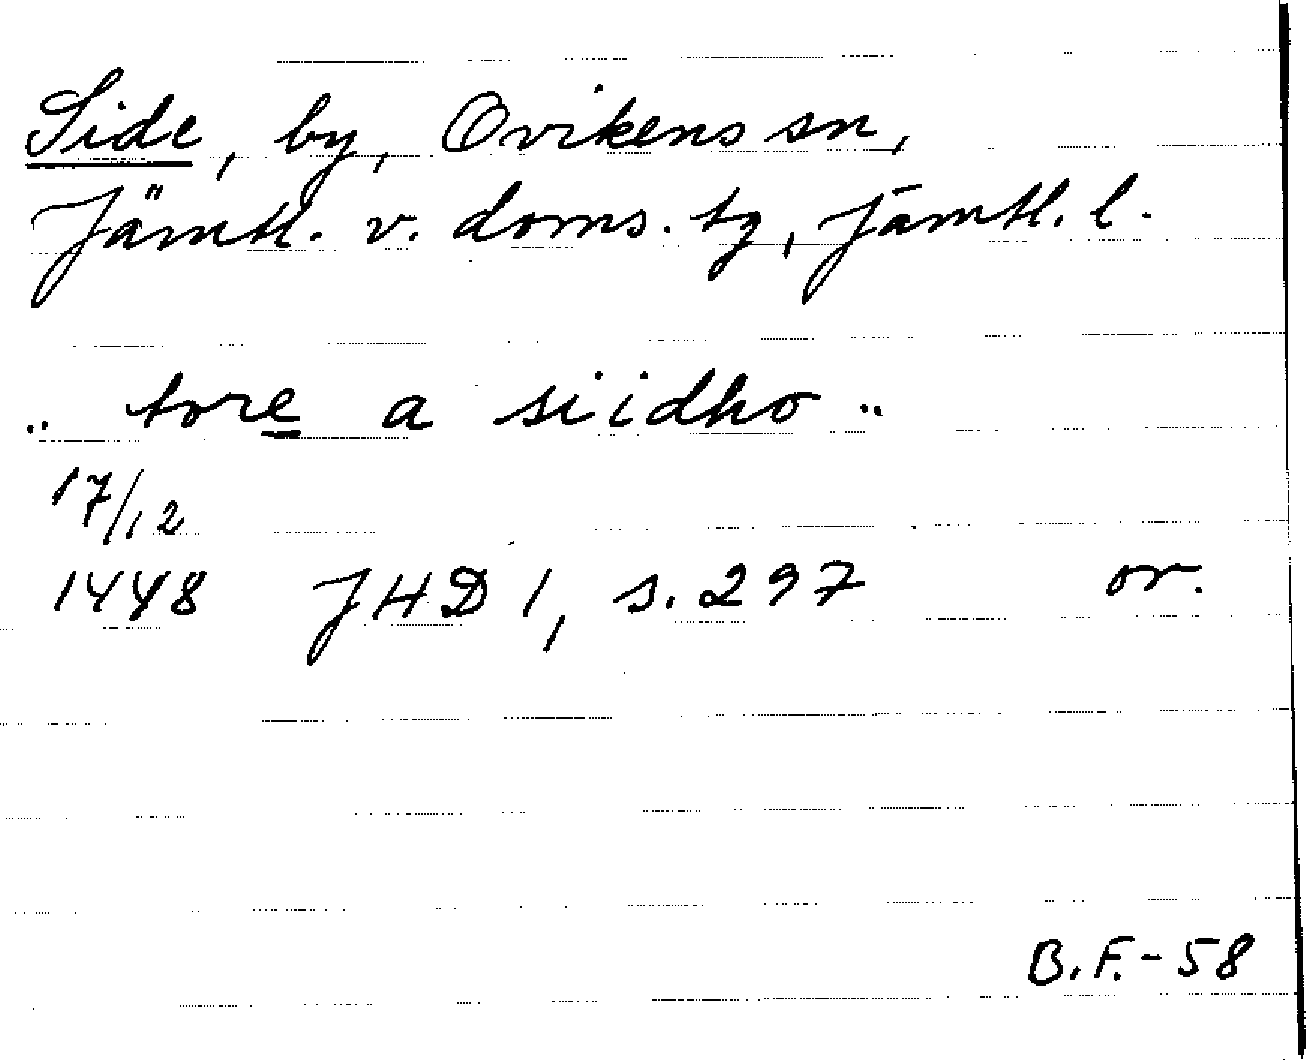 Side, by, Ovikens sn,
Jämtl. v. doms. tg, Jämtl. l.
" tore a siidho "
17/12
1448 JHD 1, s. 297 or.
B.F.-58